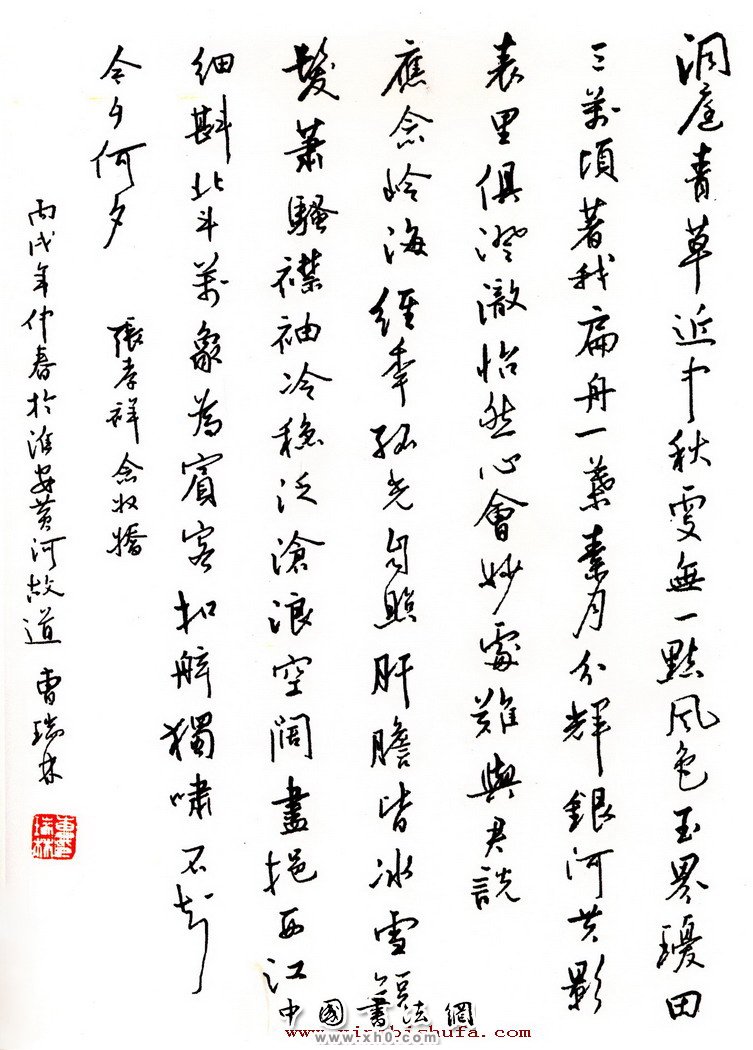 洞庭青草近中秋更無一點风色玉界瓊田
三萬頃著我扁舟一葉素月分輝銀河共影
表里俱澄澈怡然心會妙處難與君說
應念岭海經年孤光自照肝膽皆冰雪短
髮蕭騷襟袖冷穩泛滄浪空闊盡挹西江
細斟北斗萬象為賓客扣舷獨嘯不知
今夕何夕
張孝祥 念奴嬌
丙戌年仲春於淮安黃河故道 曹瑞林
中國書法網
www.yingbishufa.com
www.xh0.com